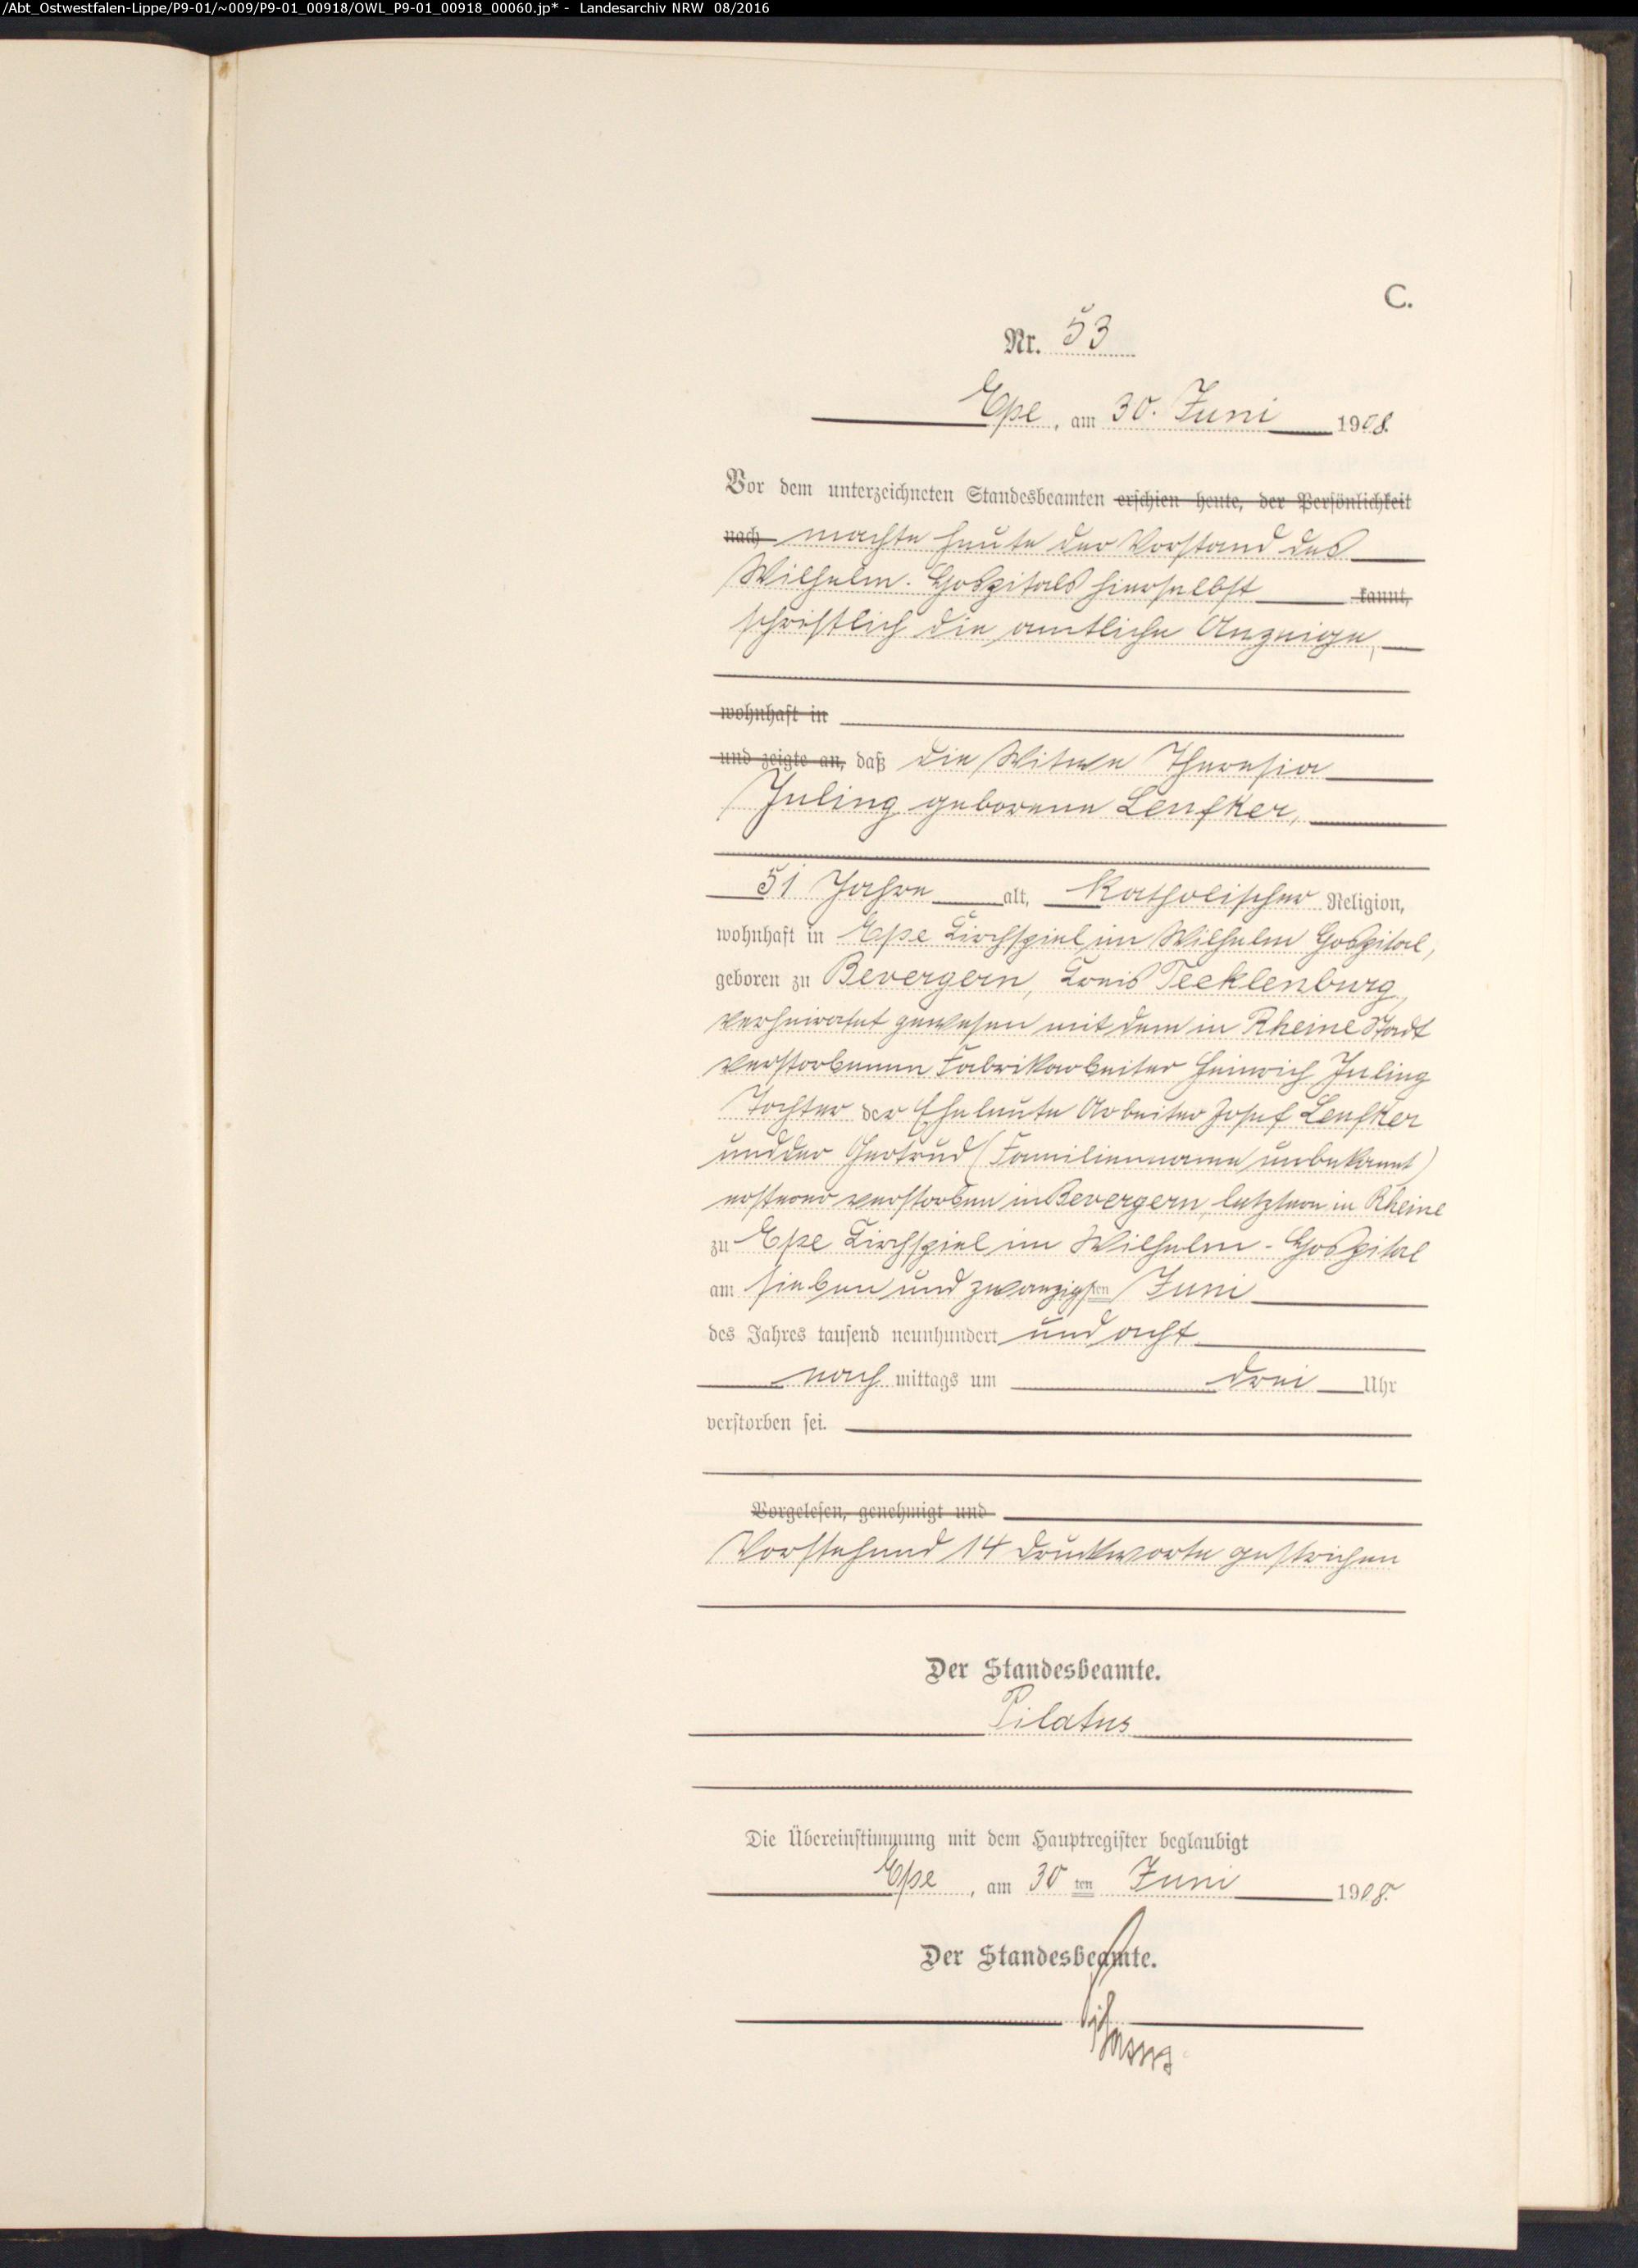 /Abt_Ostwestfalen-Lippe/P9-01/~009/P9-01_00918/OWL_P9-01_00918_00060.jp* - Landesarchiv NRW 08/2016
C.
Nr. 53
Epe, am 30. Juni 1908.
Vor dem unterzeichneten Standesbeamten erschien heute, der Persönlichkeit
nach machte heute der Vorstand des
Wilhelm-Hospitals hierselbst kannt,
schriftlich die amtliche Anzeige,
wohnhaft in
und zeigte an, daß die Witwe Theresia
Juling geborene Lenfker,
51 Jahre alt, Katholischer Religion,
wohnhaft in Epe Kirchspiel im Wilhelm Hospital,
geboren zu Bevergern, Kreis Tecklenburg,
verheiratet gewesen mit dem in Rheine Stadt
verstorbenen Fabrikarbeiter Heinrich Juling
Tochter der Eheleute Arbeiter Josef Lenfker
und der Gertrud (Familienname unbekannt)
ersterer verstorben in Bevergern, letztere in Rheine
zu Epe Kirchspiel im Wilhelm-Hospital
am sieben und zwanzigsten Juni
des Jahres tausend neunhundert und acht
nach mittags um drei Uhr
verstorben sei.
Vorgelesen, genehmigt und
Vorstehend 14 Druckworte gestrichen
Der Standesbeamte.
Pilatus
Die Übereinstimmung mit dem Hauptregister beglaubigt
Epe, am 30 ten Juni 1908.
Der Standesbeamte.